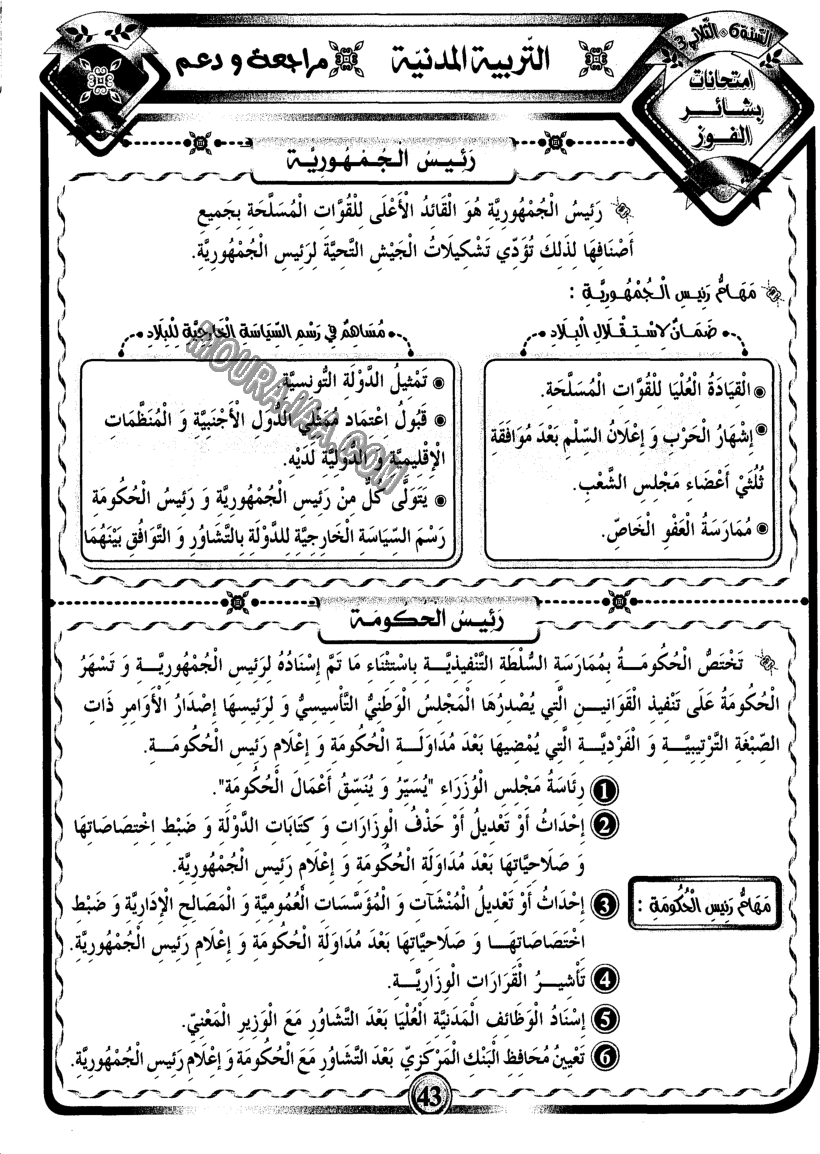 السّنة 6 - الثّلاثي 3
امتحانات
بشائر
الفوز
التّربية المدنيّة
مراجعة و دعم
رَئِيسُ الْجُمْهُورِيَّة
رَئِيسُ الْجُمْهُورِيَّةِ هُوَ الْقَائِدُ الْأَعْلَى لِلْقُوَّاتِ الْمُسَلَّحَةِ بِجَمِيعِ
أَصْنَافِهَا لِذَلِكَ تُؤَدِّي تَشْكِيلَاتُ الْجَيْشِ التَّحِيَّةَ لِرَئِيسِ الْجُمْهُورِيَّةِ.
مَهَامُّ رَئِيسِ الْجُمْهُورِيَّةِ :
ضَمَانٌ لِاسْتِقْلَالِ الْبِلَادِ
• الْقِيَادَةُ الْعُلْيَا لِلْقُوَّاتِ الْمُسَلَّحَةِ.
• إِشْهَارُ الْحَرْبِ وَ إِعْلَانُ السِّلْمِ بَعْدَ مُوَافَقَةِ
ثُلُثَيْ أَعْضَاءِ مَجْلِسِ الشَّعْبِ.
• مُمَارَسَةُ الْعَفْوِ الْخَاصِّ.
مُسَاهِمٌ فِي رَسْمِ السِّيَاسَةِ الْخَارِجِيَّةِ لِلْبِلَادِ
• تَمْثِيلُ الدَّوْلَةِ التُّونِسِيَّةِ
• قَبُولُ اعْتِمَادِ مُمَثِّلِي الدُّوَلِ الْأَجْنَبِيَّةِ وَ الْمُنَظَّمَاتِ
الْإِقْلِيمِيَّةِ وَ الدُّوَلِيَّةِ لَدَيْهِ.
• يَتَوَلَّى كُلٌّ مِنْ رَئِيسِ الْجُمْهُورِيَّةِ وَ رَئِيسُ الْحُكُومَةِ
رَسْمَ السِّيَاسَةِ الْخَارِجِيَّةِ لِلدَّوْلَةِ بِالتَّشَاوُرِ وَ التَّوَافُقِ بَيْنَهُمَا
MOURAJAA.COM
رَئِيسُ الحكومة
تَخْتَصُّ الْحُكُومَةُ بِمُمَارَسَةِ السُّلْطَةِ التَّنْفِيذِيَّةِ بِاسْتِثْنَاءِ مَا تَمَّ إِسْنَادُهُ لِرَئِيسِ الْجُمْهُورِيَّةِ وَ تَسْهَرُ
الْحُكُومَةُ عَلَى تَنْفِيذِ الْقَوَانِينِ الَّتِي يُصْدِرُهَا الْمَجْلِسُ الْوَطَنِيُّ التَّأْسِيسِيُّ وَ لِرَئِيسِهَا إِصْدَارُ الْأَوَامِرِ ذَاتِ
الصِّبْغَةِ التَّرْتِيبِيَّةِ وَ الْفَرْدِيَّةِ الَّتِي يُمْضِيهَا بَعْدَ مُدَاوَلَةِ الْحُكُومَةِ وَ إِعْلَامِ رَئِيسِ الْحُكُومَةِ.
مَهَامُّ رَئِيسِ الْحُكُومَةِ :
1 رِئَاسَةُ مَجْلِسِ الْوُزَرَاءِ "يُسَيِّرُ وَ يُنَسِّقُ أَعْمَالَ الْحُكُومَةِ".
2 إِحْدَاثُ أَوْ تَعْدِيلُ أَوْ حَذْفُ الْوِزَارَاتِ وَ كِتَابَاتِ الدَّوْلَةِ وَ ضَبْطِ اِخْتِصَاصَاتِهَا
وَ صَلَاحِيَّاتِهَا بَعْدَ مُدَاوَلَةِ الْحُكُومَةِ وَ إِعْلَامِ رَئِيسِ الْجُمْهُورِيَّةِ.
3 إِحْدَاثُ أَوْ تَعْدِيلُ الْمُنْشَآتِ وَ الْمُؤَسَّسَاتِ الْعُمُومِيَّةِ وَ الْمَصَالِحِ الْإِدَارِيَّةِ وَ ضَبْط
اخْتِصَاصَاتِهَا وَ صَلَاحِيَّاتِهَا بَعْدَ مُدَاوَلَةِ الْحُكُومَةِ وَ إِعْلَامِ رَئِيسِ الْجُمْهُورِيَّةِ.
4 تَأْشِيرُ الْقَرَارَاتِ الْوِزَارِيَّةِ.
5 إِسْنَادُ الْوَظَائِفِ الْمَدَنِيَّةِ الْعُلْيَا بَعْدَ التَّشَاوُرِ مَعَ الْوَزِيرِ الْمَعْنِيِّ.
6 تَعْيِينُ مُحَافِظِ الْبَنْكِ الْمَرْكَزِيِّ بَعْدَ التَّشَاوُرِ مَعَ الْحُكُومَةِ وَ إِعْلَامِ رَئِيسِ الْجُمْهُورِيَّةِ.
43